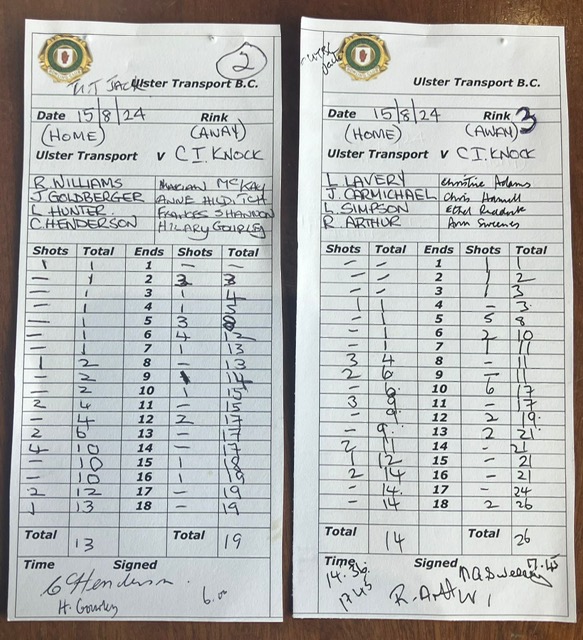 2
Ulster Transport B.C.
Date 15/8/24 Rink
(HOME) (AWAY)
Ulster Transport v C I. KNOCK
R. WILLIAMS MARIAN MCKAY
J GOLDBERGER ANNE HILDITCH
L HUNTER FRANCES SHANNON
C. HENDERSON HILARY GOURLEY
Shots Total Ends Shots Total
1 1 1 — —
— 1 2 3 3
— 1 3 1 4
— 1 4 1 5
— 1 5 3 8
— 1 6 4 12
— 1 7 1 13
1 2 8 — 13
— 2 9 1 14
— 2 10 1 15
2 4 11 — 15
— 4 12 2 17
2 6 13 — 17
4 10 14 — 17
— 10 15 1 18
— 10 16 1 19
2 12 17 — 19
1 13 18 — 19
Total 13 Total 19
Time Signed
C Henderson.
H. Gourley 6.00
Ulster Transport B.C.
Date 15/8/24 Rink 3
(HOME) (AWAY)
Ulster Transport v C I. KNOCK
L LAVERY Christine Adams
J. CARMICHAEL Chris
L. SIMPSON Ethel
R ARTHUR Ann Sweeney
Shots Total Ends Shots Total
— — 1 1 1
— — 2 1 2
— — 3 1 3
1 1 4 — 3
— 1 5 5 8
— 1 6 2 10
— 1 7 1 11
3 4 8 — 11
2 6 9 — 11
— 6 10 6 17
3 9 11 — 17
— 9 12 2 19
— 9 13 2 21
2 11 14 — 21
1 12 15 — 21
2 14 16 — 21
— 14 17 — 24
— 14 18 2 26
Total 14 Total 26
Time Signed 7.45
14.36
17 45 R. Arthur